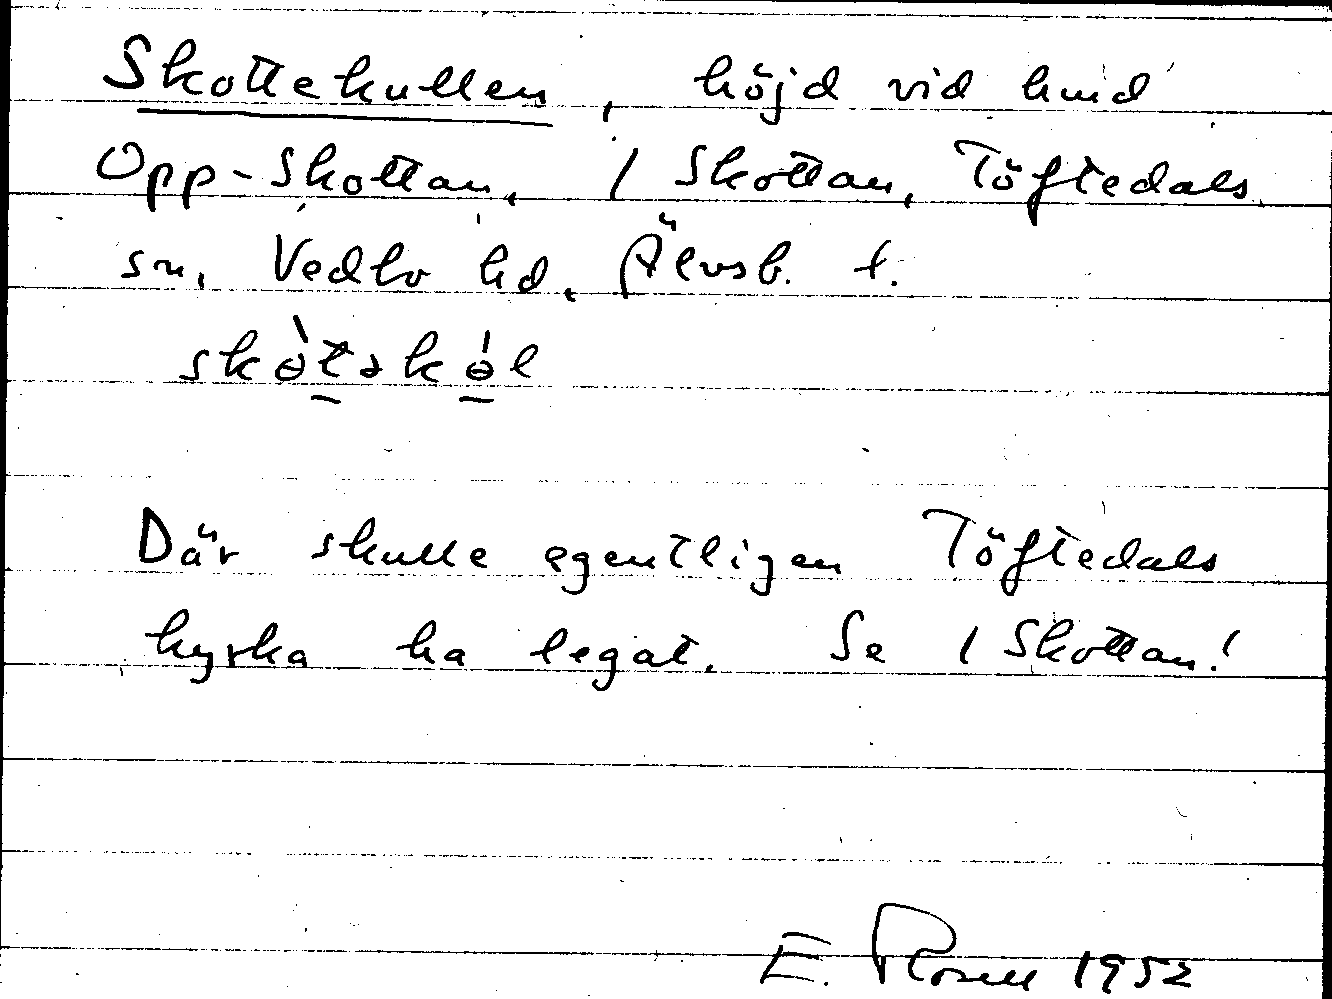 Skottekullen, höjd vid hmd
Opp-Skottan, 1 Skottan, Töftedals
sn, Vedbo hd, Älvsb. l.
skɵ̀təkɵ́l
Där skulle egentligen Töftedals
kyrka ha legat. Se 1 Skottan!
E. Rosell 1952